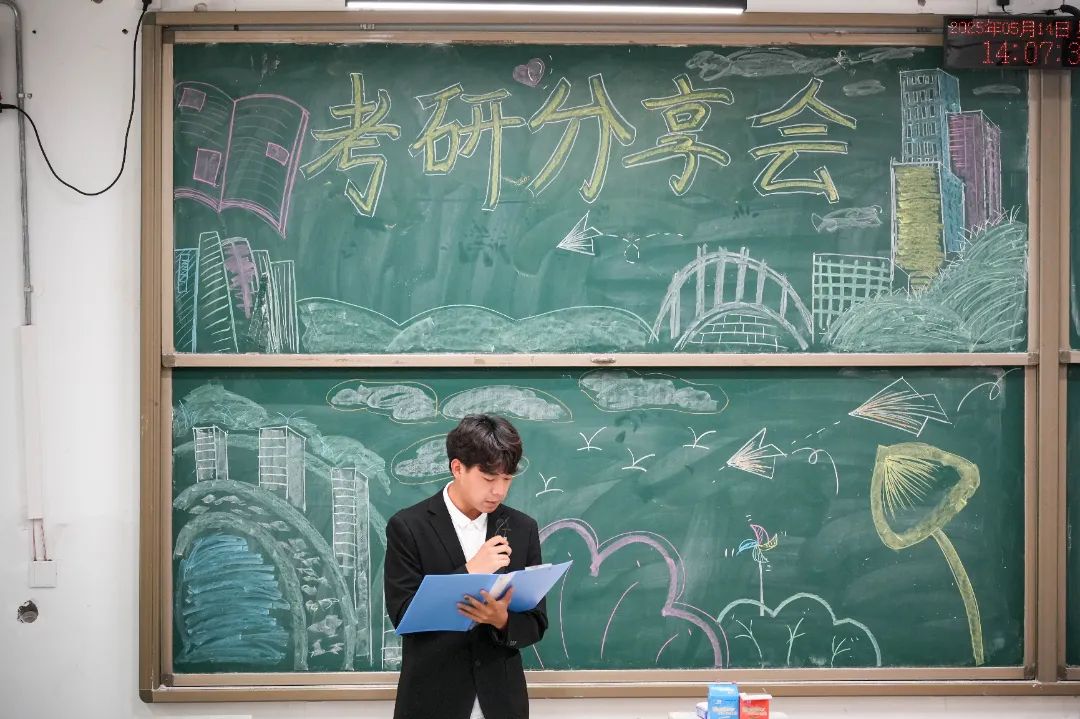 考研分享会
2025年05月14日
14:07:3